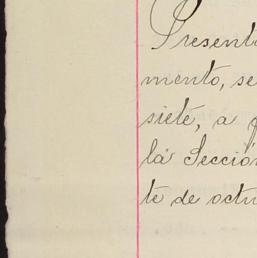 Present
mento, se
siete, a
la Sección
te de octu